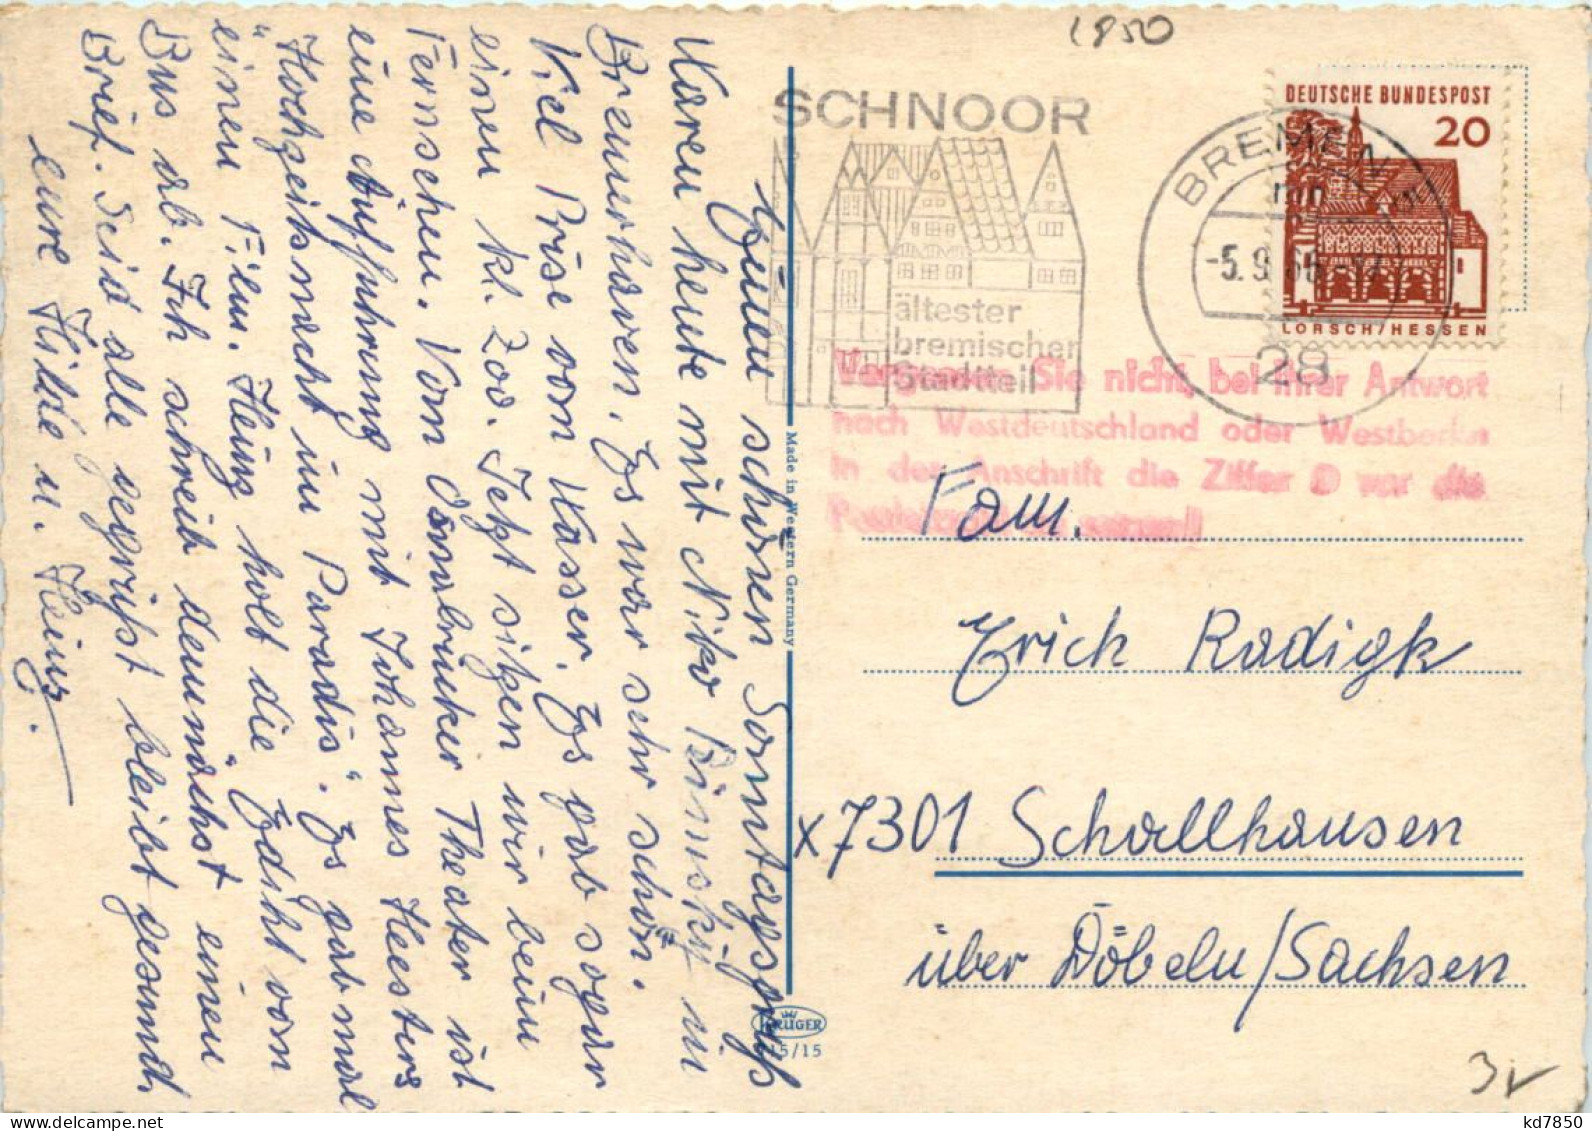 1850
SCHNOOR
ältester
bremischer
Stadtteil
BREMEN
mn
-5.9.66
28
DEUTSCHE BUNDESPOST
20
LORSCH/HESSEN
Vergessen Sie nicht, bei Ihrer Antwort
nach Westdeutschland oder Westberlin
in der Anschrift die Ziffer D vor die
Einen schönen Sonntagsgruß
Waren heute mit Niko in
Bremerhaven. Es war sehr schön.
Viel Prise vom Wasser. Es gab sogar
einen kl. Zoo. Jetzt sitzen wir beim
Fernsehen. Vom Osnabrücker Theater ist
eine Aufführung mit Johannes Heesters
"Hochzeitsnacht im Paradis". Es gab mal
einen Film. Heinz holt die Ediht von
Bus ab. Ich schreib demnächst einen
Brief. Seid alle gegrüßt bleibt gesund.
eure Hilde u. Heinz.
Made in Western Germany
KRÜGER
15/15
Fam.
Erich Radigk
x7301 Schallhausen
über Döbeln/Sachsen
3
kd7850
delcampe.net